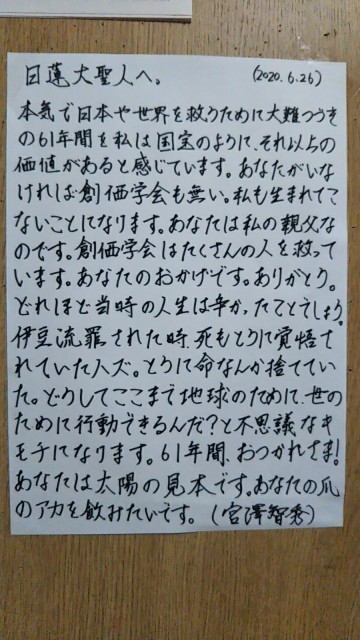 日蓮大聖人へ。 (2020.6.26)
本気で日本や世界を救うために大難つづき
の61年間を私は国宝のように、それ以上の
価値があると感じています。あなたがいな
ければ創価学会も無い。私も生まれてこ
ないことになります。あなたは私の親父な
のです。創価学会はたくさんの人を救って
います。あなたのおかげです。ありがとう。
どれほど当時の人生は辛かったことでしょう。
伊豆流罪された時、死もとうに覚悟さ
れていたハズ。とうに命なんか捨ててい
た。どうしてここまで地球のために、世の
ために行動できるんだ?と不思議なキ
モチになります。61年間、おつかれさま!
あなたは太陽の見本です。あなたの爪
のアカを飲みたいです。(宮澤智秀)